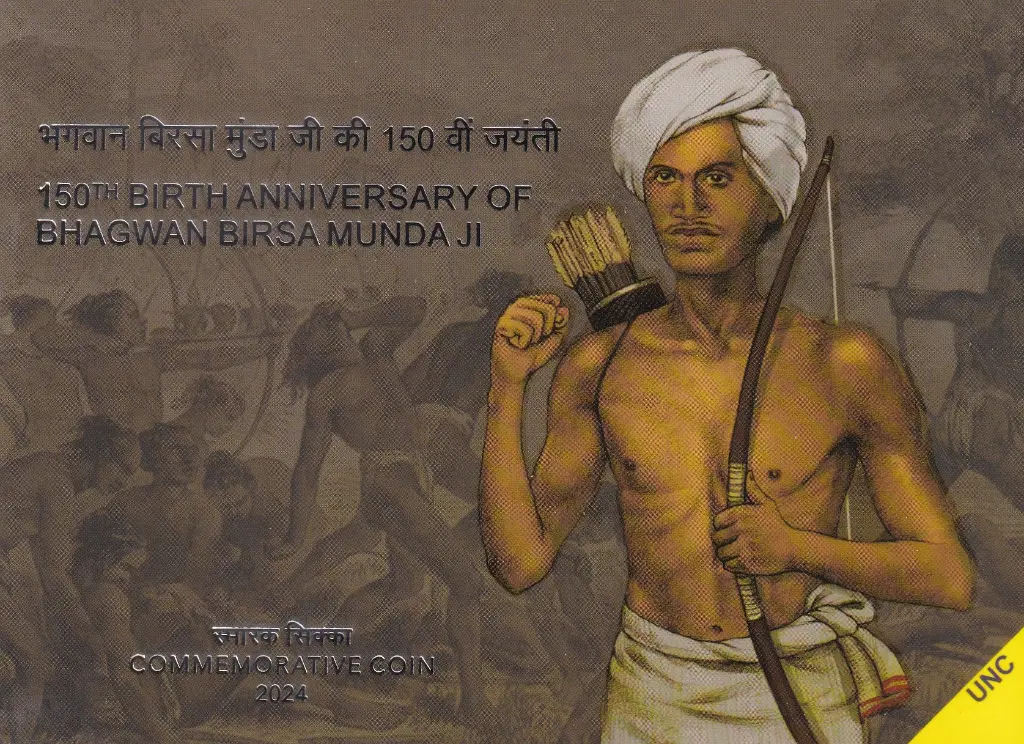 भगवान बिरसा मुंडा जी की 150 वीं जयंती
150TH BIRTH ANNIVERSARY OF
BHAGWAN BIRSA MUNDA JI
स्मारक सिक्का
COMMEMORATIVE COIN
2024
UNC